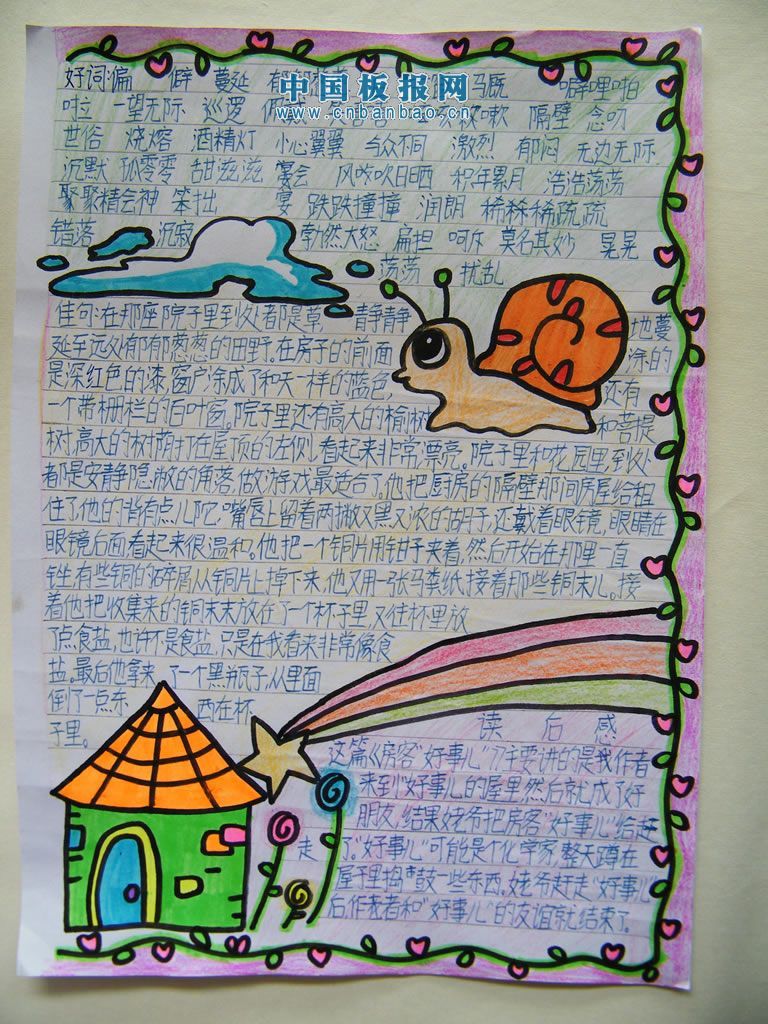 好词:偏 僻 蔓延
中国板报网
马厩 噼哩啪
www.cnbanbao.cn
啦 一望无际 巡逻 咳嗽 隔壁 念叨
世俗 烧熔 酒精灯 小心翼翼 与众不同 激烈 郁闷 无边无际
沉默 孤零零 甜滋滋 宴会 风吹日晒 积年累月 浩浩荡荡
聚聚精会神 笨拙 宴 跌跌撞撞 润朗 稀稀稀疏疏
错落 沉寂 勃然大怒 扁担 呵斥 莫名其妙 晃晃
荡荡 扰乱
佳句:在那座院子里到处都是草 静静静 地蔓
延至远处郁郁葱葱的田野。在房子的前面 涂的
是深红色的漆,窗户涂成了和天一样的蓝色, 还有
一个带栅栏的百叶窗。院子里还有高大的榆树 和菩提
树,高大的树荫打在屋顶的左侧,看起来非常漂亮。院子里和花园里,到处
都是安静隐敝的角落,做游戏最适合了。他把厨房的隔壁那间房屋给租
住了,他的背有点儿驼,嘴唇上留着两撇又黑又浓的胡子,还戴着眼镜,眼睛在
眼镜后面看起来很温和。他把一个铜片用钳子夹着,然后开始在那里一直
锉,有些铜的碎屑从铜片上掉下来,他又用一张马粪纸,接着那些铜末儿。接
着他把收集来的铜末末放在了一个杯子里,又往杯里放
了点食盐,也许不是食盐,只是在我看来非常像食
盐。最后他拿来 了一个黑瓶子,从里面
倒了一点东 西在杯
子里。
读 后 感
这篇《房客“好事儿”》主要讲的是我作者
来到“好事儿”的屋里然后就成了好
朋友,结果姥爷把房客“好事儿”给赶
走 了。“好事儿”可能是个化学家,整天蹲在
屋子里捣鼓一些东西,姥爷赶走“好事儿”
后,作者和“好事儿”的友谊就结束了。